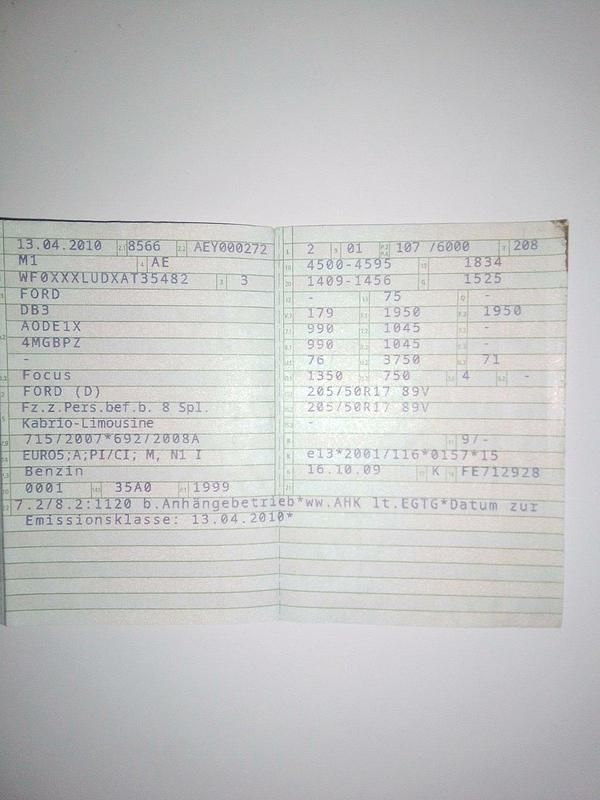 13.04.2010 8566 AEY000272
M1 AE
WF0XXXLUDXAT35482 3
FORD
DB3
AODE1X
4MGBPZ
-
Focus
FORD (D)
Fz.z.Pers.bef.b. 8 Spl.
Kabrio-Limousine
715/2007*692/2008A
EURO5;A;PI/CI; M, N1 I
Benzin
0001 35A0 1999
2 01 107 /6000 208
4500-4595 1834
1409-1456 1525
- 75 -
179 1950 1950
990 1045 -
990 1045 -
76 3750 71
1350 750 4 -
205/50R17 89V
205/50R17 89V
-
9/-
e13*2001/116*0157*15
16.10.09 K FE712928
7.2/8.2:1120 b.Anhängebetrieb*ww.AHK lt.EGTG*Datum zur
Emissionsklasse: 13.04.2010*